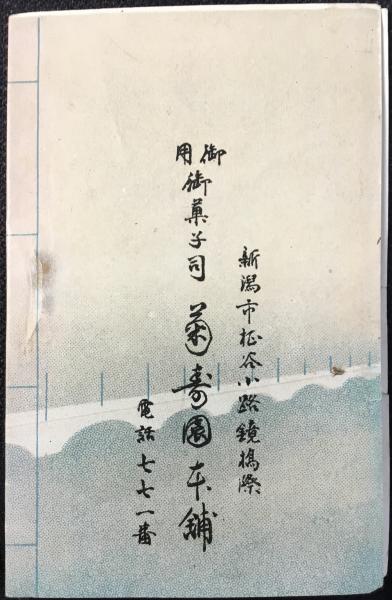 新潟市柾谷小路鏡橋際
御用
御菓子司 菊寿園本舗
電話七七一番